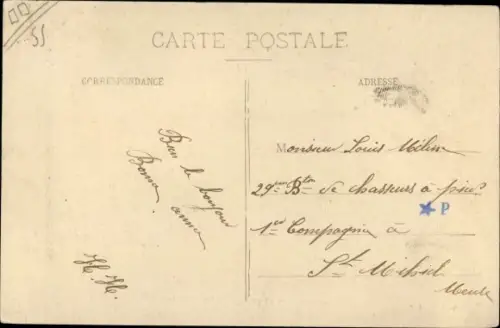 55
CARTE POSTALE
CORRESPONDANCE
ADRESSE
Bien le bonjour
Bonne année
H. H.
Monsieur Louis
29ème Bton de chasseurs à pied
P
1ère Compagnie à
St Mihiel
Meuse